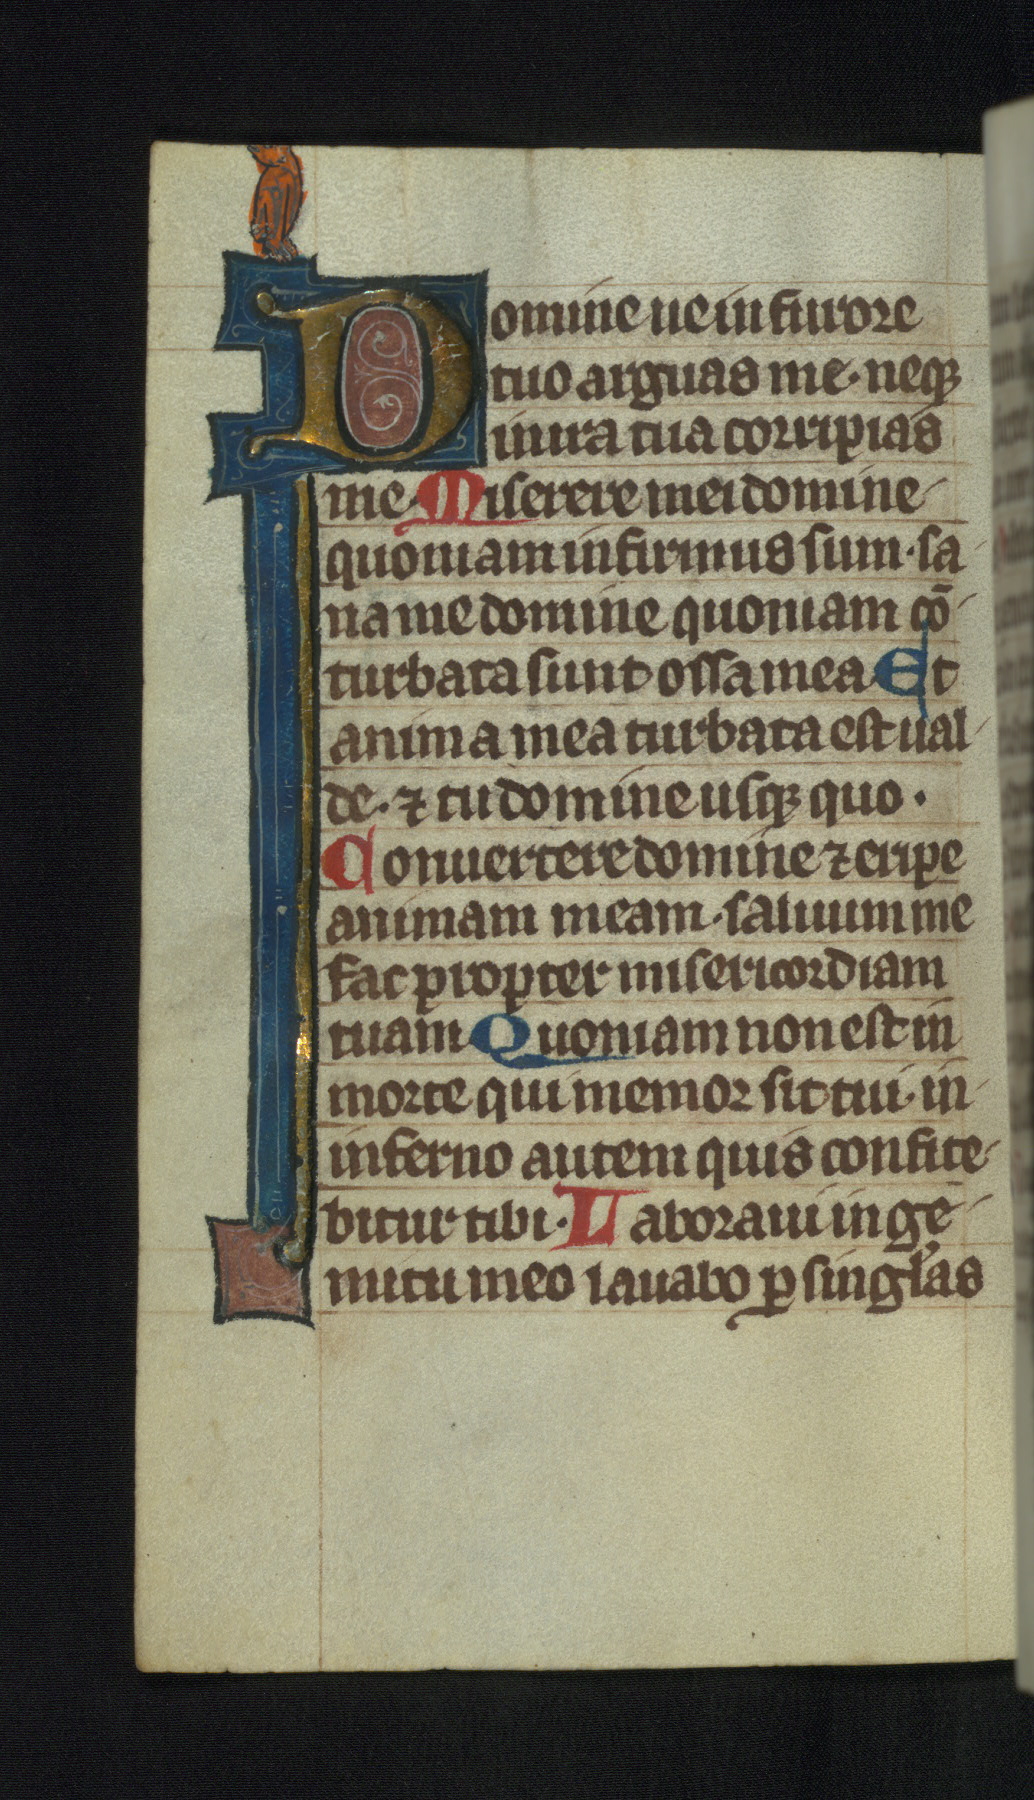 Domine ne in furore
tuo arguas me · neqꝫ
in ira tua corripias
me · Miserere mei domine
quoniam infirmus sum · sa
na me domine quoniam cō
turbata sunt ossa mea Et
anima mea turbata est ual
de · ⁊ tu domine usqꝫ quo ·
Conuertere domine ⁊ eripe
animam meam · saluum me
fac propter misericordiam
tuam Quoniam non est in
morte qui memor sit tui · in
inferno autem quis confite
bitur tibi · Laboraui in ge
mitu meo lauabo ꝑ singl̓as